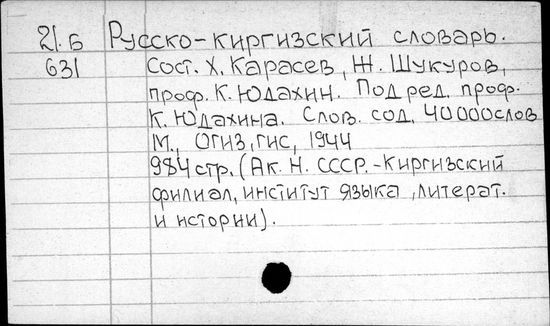 21.Б Русско-киргизский словарь.
631 Сост. Х. Карасев, Ж. Шукуров,
проф. К. Юдахин. Под ред. проф.
К. Юдахина. Слов. сод. 40000 слов
М., Огиз, гис, 1944
984 стр. (Ак. Н. СССР.-Киргизский
филиал, институт языка, литерат.
и истории).